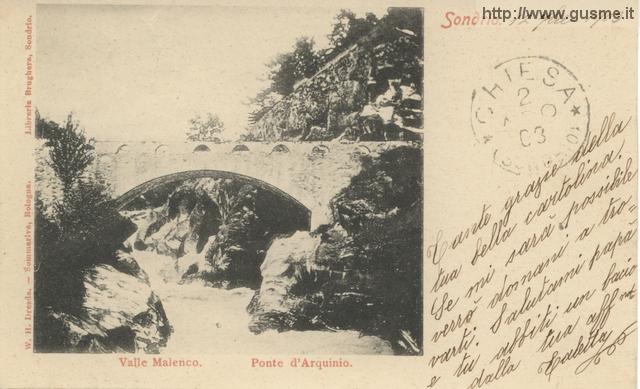 http://www.gusme.it
Sondrio, 12
CHIESA
2
03
(SONDRIO)
Tante grazie della
tua bella cartolina,
Se mi sarà possibile
verrò domani a tro-
varti. Salutami papà
e tu abbiti un bacio
dalla tua aff
W. H. Dresda. – Sommariva, Bologna. Libreria Brughera, Sondrio.
Valle Malenco. Ponte d'Arquinio.